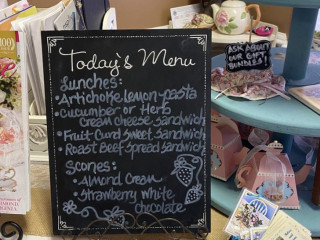 Today's Menu
Lunches:
• Artichoke lemon pasta
• cucumber or Herb
cream cheese sandwich
• Fruit Curd Sweet Sandwich
• Roast Beef Spread Sandwich
Scones:
• Almond Cream
• Strawberry White
chocolate
ASK ABOUT
OUR GIFT
BUNDLES!